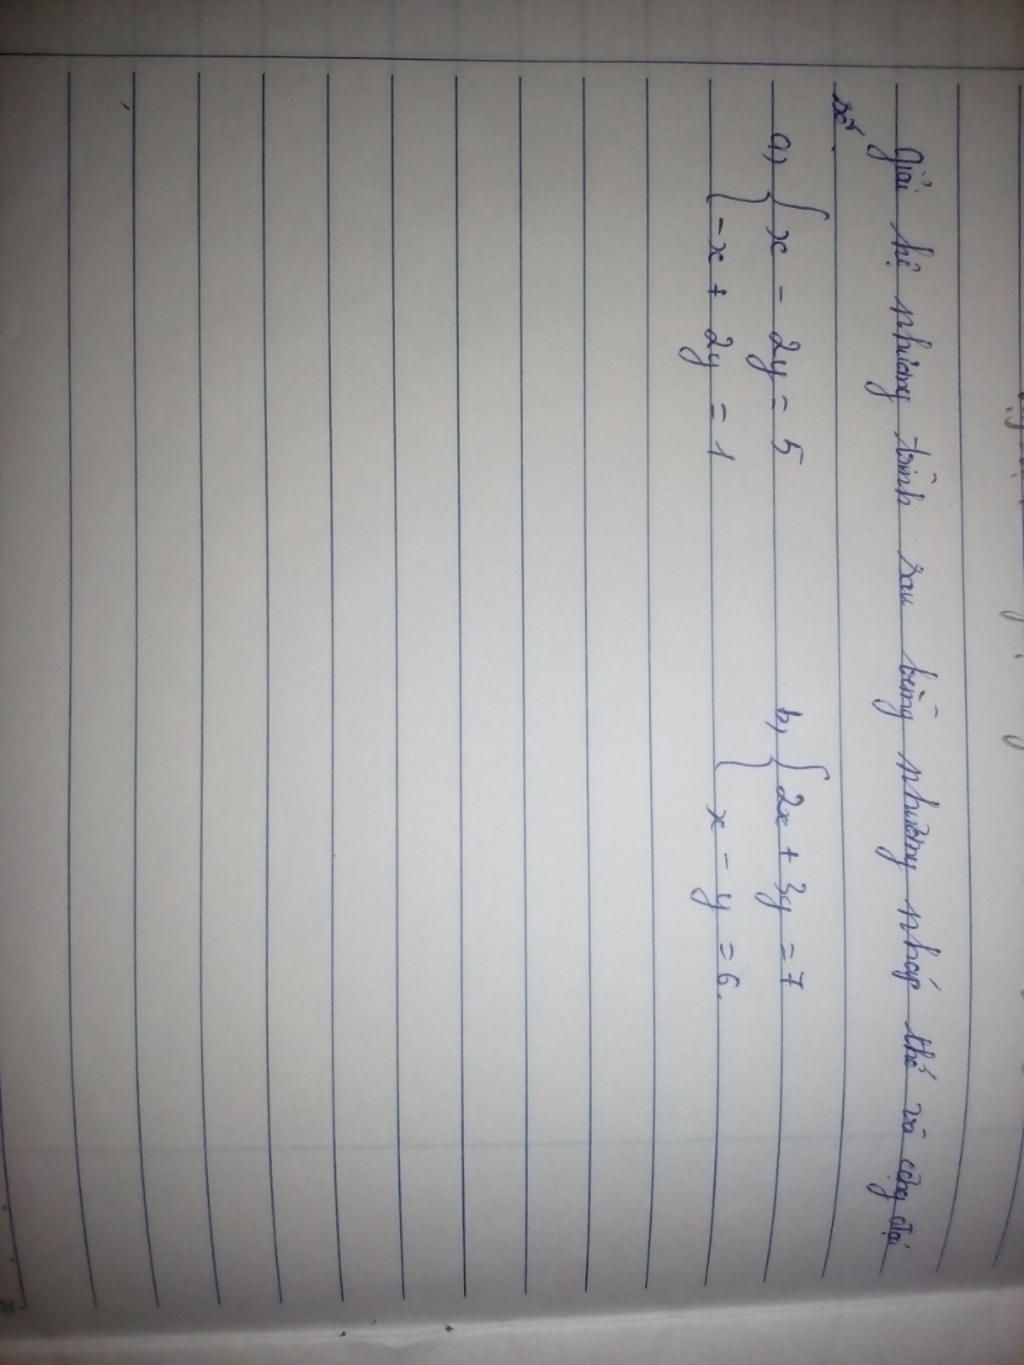 Giải hệ phương trình sau bằng phương pháp thế và cộng đại
số.
a) { x - 2y = 5
-x + 2y = 1
b) { 2x + 3y = 7
x - y = 6.